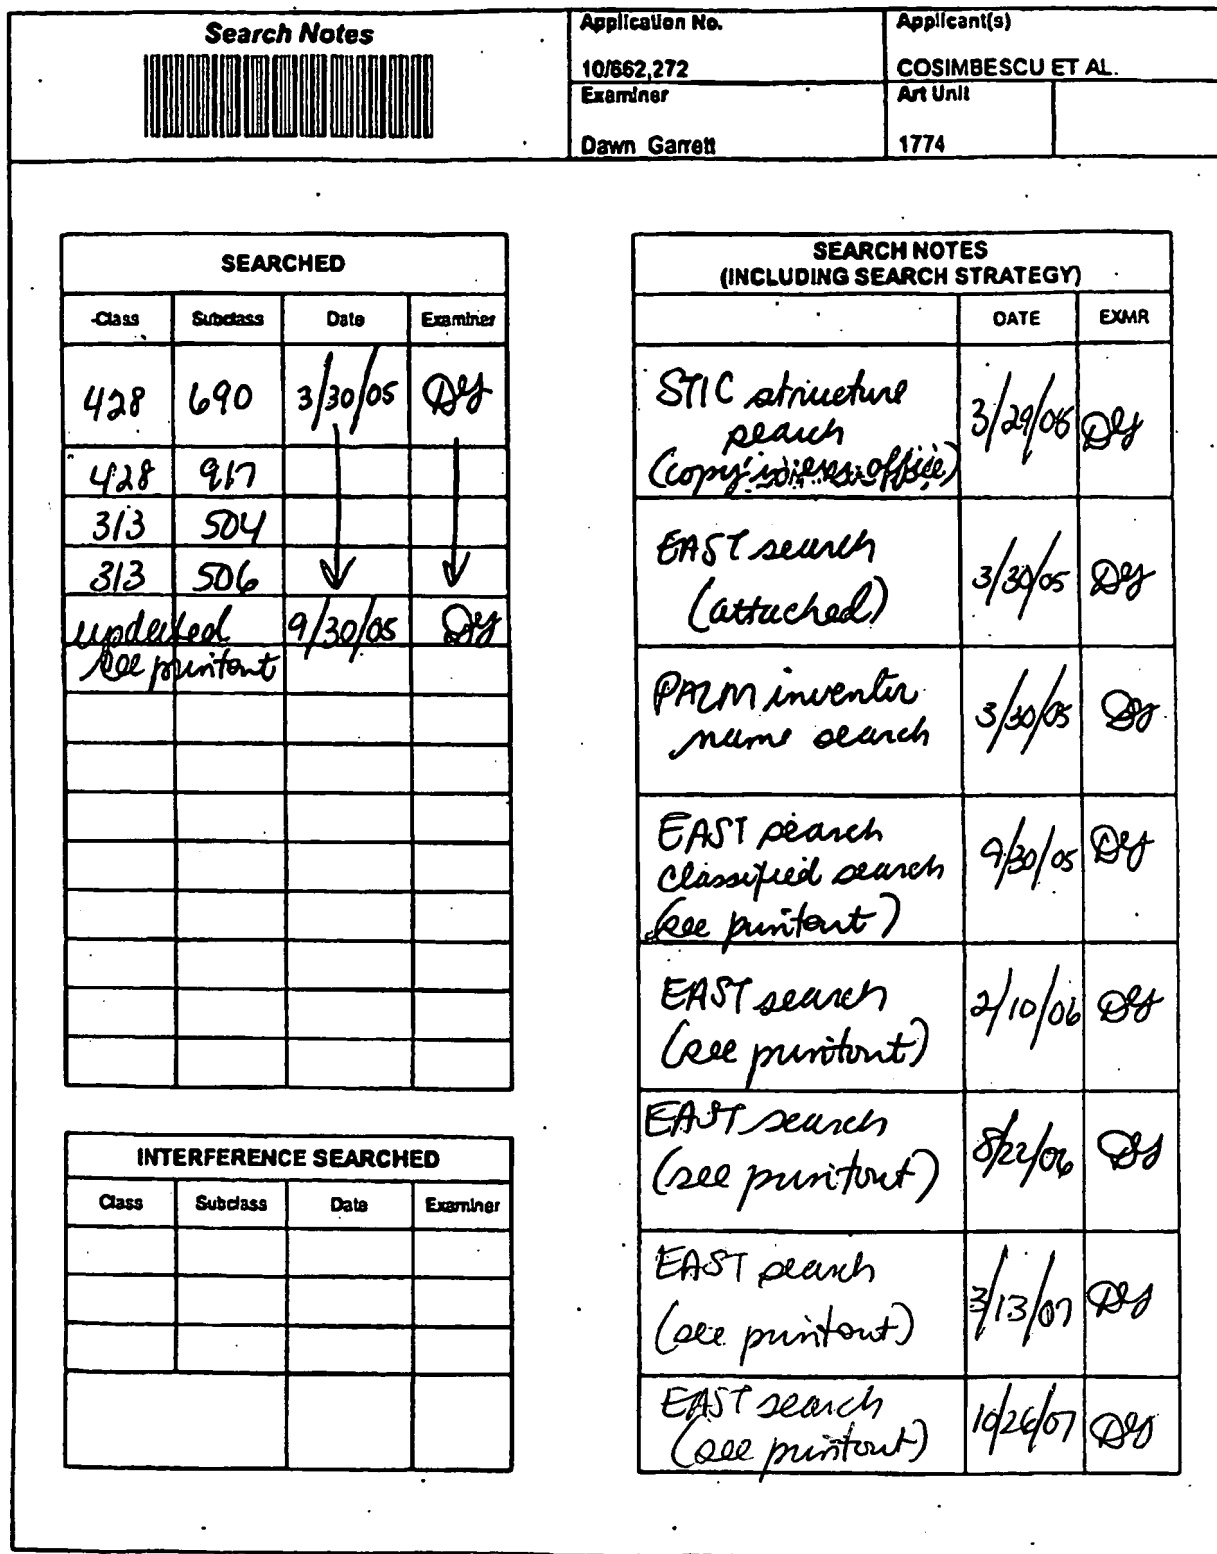 Search Notes
Application No.
10/662,272
Applicant(s)
COSIMBESCU ET AL.
Examiner
Dawn Garrett
Art Unit
1774
SEARCHED
Class Subclass Date Examiner
428 690 3/30/05 DG
428 917
313 504
313 506
updated 9/30/05 DG
see printout
INTERFERENCE SEARCHED
Class Subclass Date Examiner
SEARCH NOTES
(INCLUDING SEARCH STRATEGY)
DATE EXMR
STIC structure
search
(copy in office) 3/29/05 DG
EAST search
(attached) 3/30/05 DG
PALM inventor
name search 3/30/05 DG
EAST search
classified search
(see printout) 9/30/05 DG
EAST search
(see printout) 2/10/06 DG
EAST search
(see printout) 8/22/06 DG
EAST search
(see printout) 3/13/07 DG
EAST search
(see printout) 10/26/07 DG